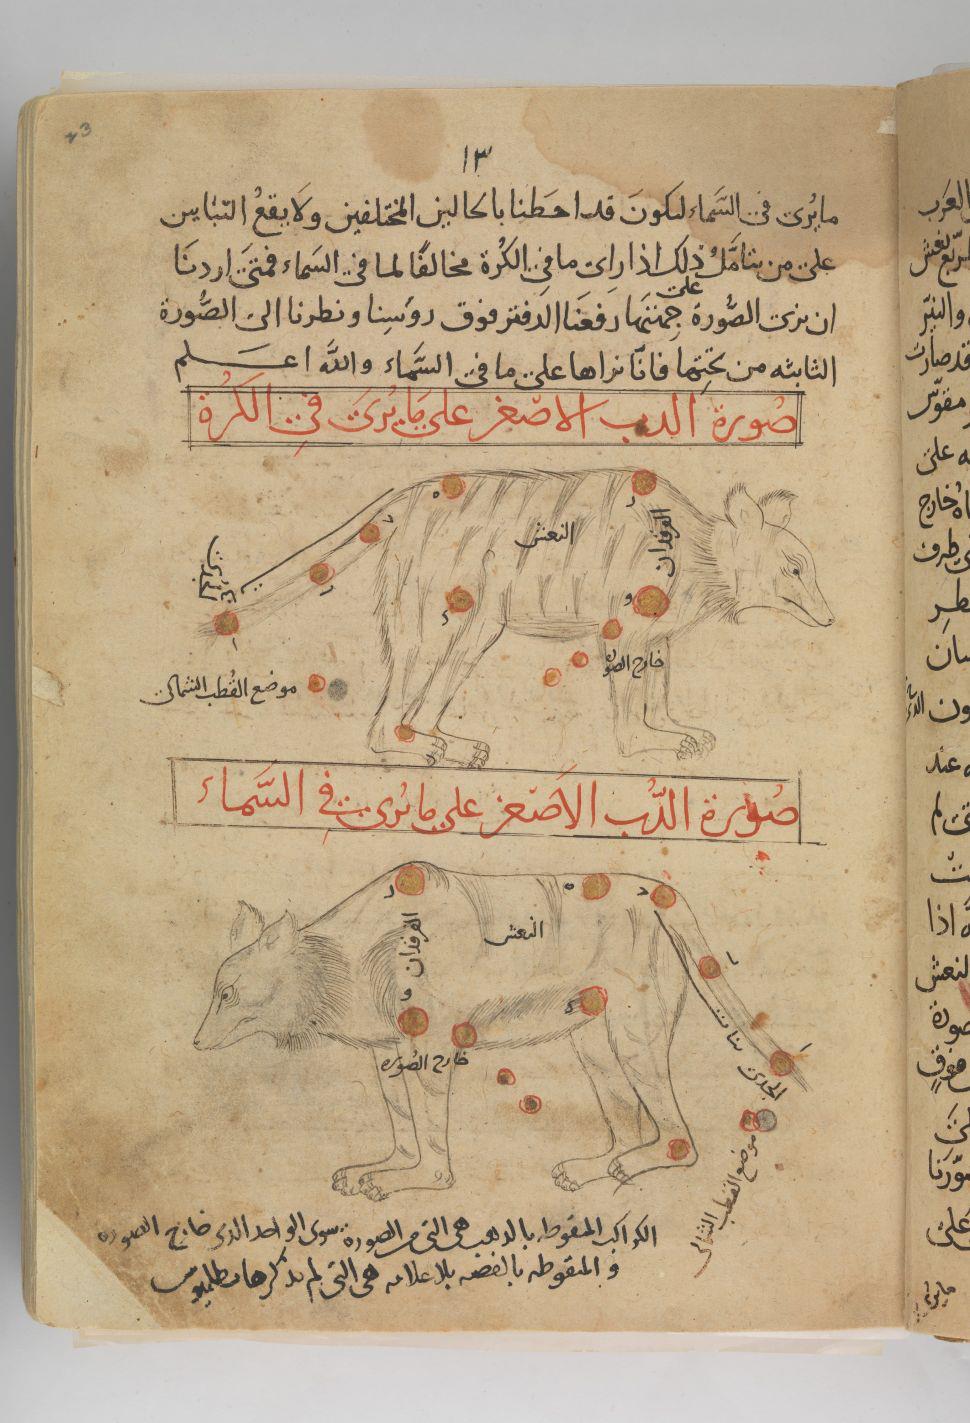 ١٣
ما يُرى في السَّماء لنكونَ قد احَطنا باكالين المختلفين ولا يقعُ التباين
على من يتامَّلُ ذلك اذا راى ما في الكُرة مخالفًا لما في السَماء فمتى اردنا
ان نرى الصُّورة على جهتها رفعنا الدفتر فوق روسنا ونظرنا الى الصُّورة
الثانيه من تحتها فانّا نراها على ما في السَّماء والله اعلم
صُورة الدب الاصْغر على ما يُرى في الكُرة
النعش
الفرقدان
خارج الصوره
موضع القُطب الشمالى
صُورة الدُّب الاَصغر على ما يُرى في السَّماء
النعش
الفرقدان
خارج الصُوره
بنات
الجدى
موضع القطب الشمالى
الكواكب المنقوطه بالذهب هي التى من الصورة سوى الواحد الذى خارج الصوره
و المنقوطه بالفضه بلا علامه هي التى لم يذكرها بطلميوس
العَرب
على
خارج
طرف
عند
اذا
النعش
صورة
23